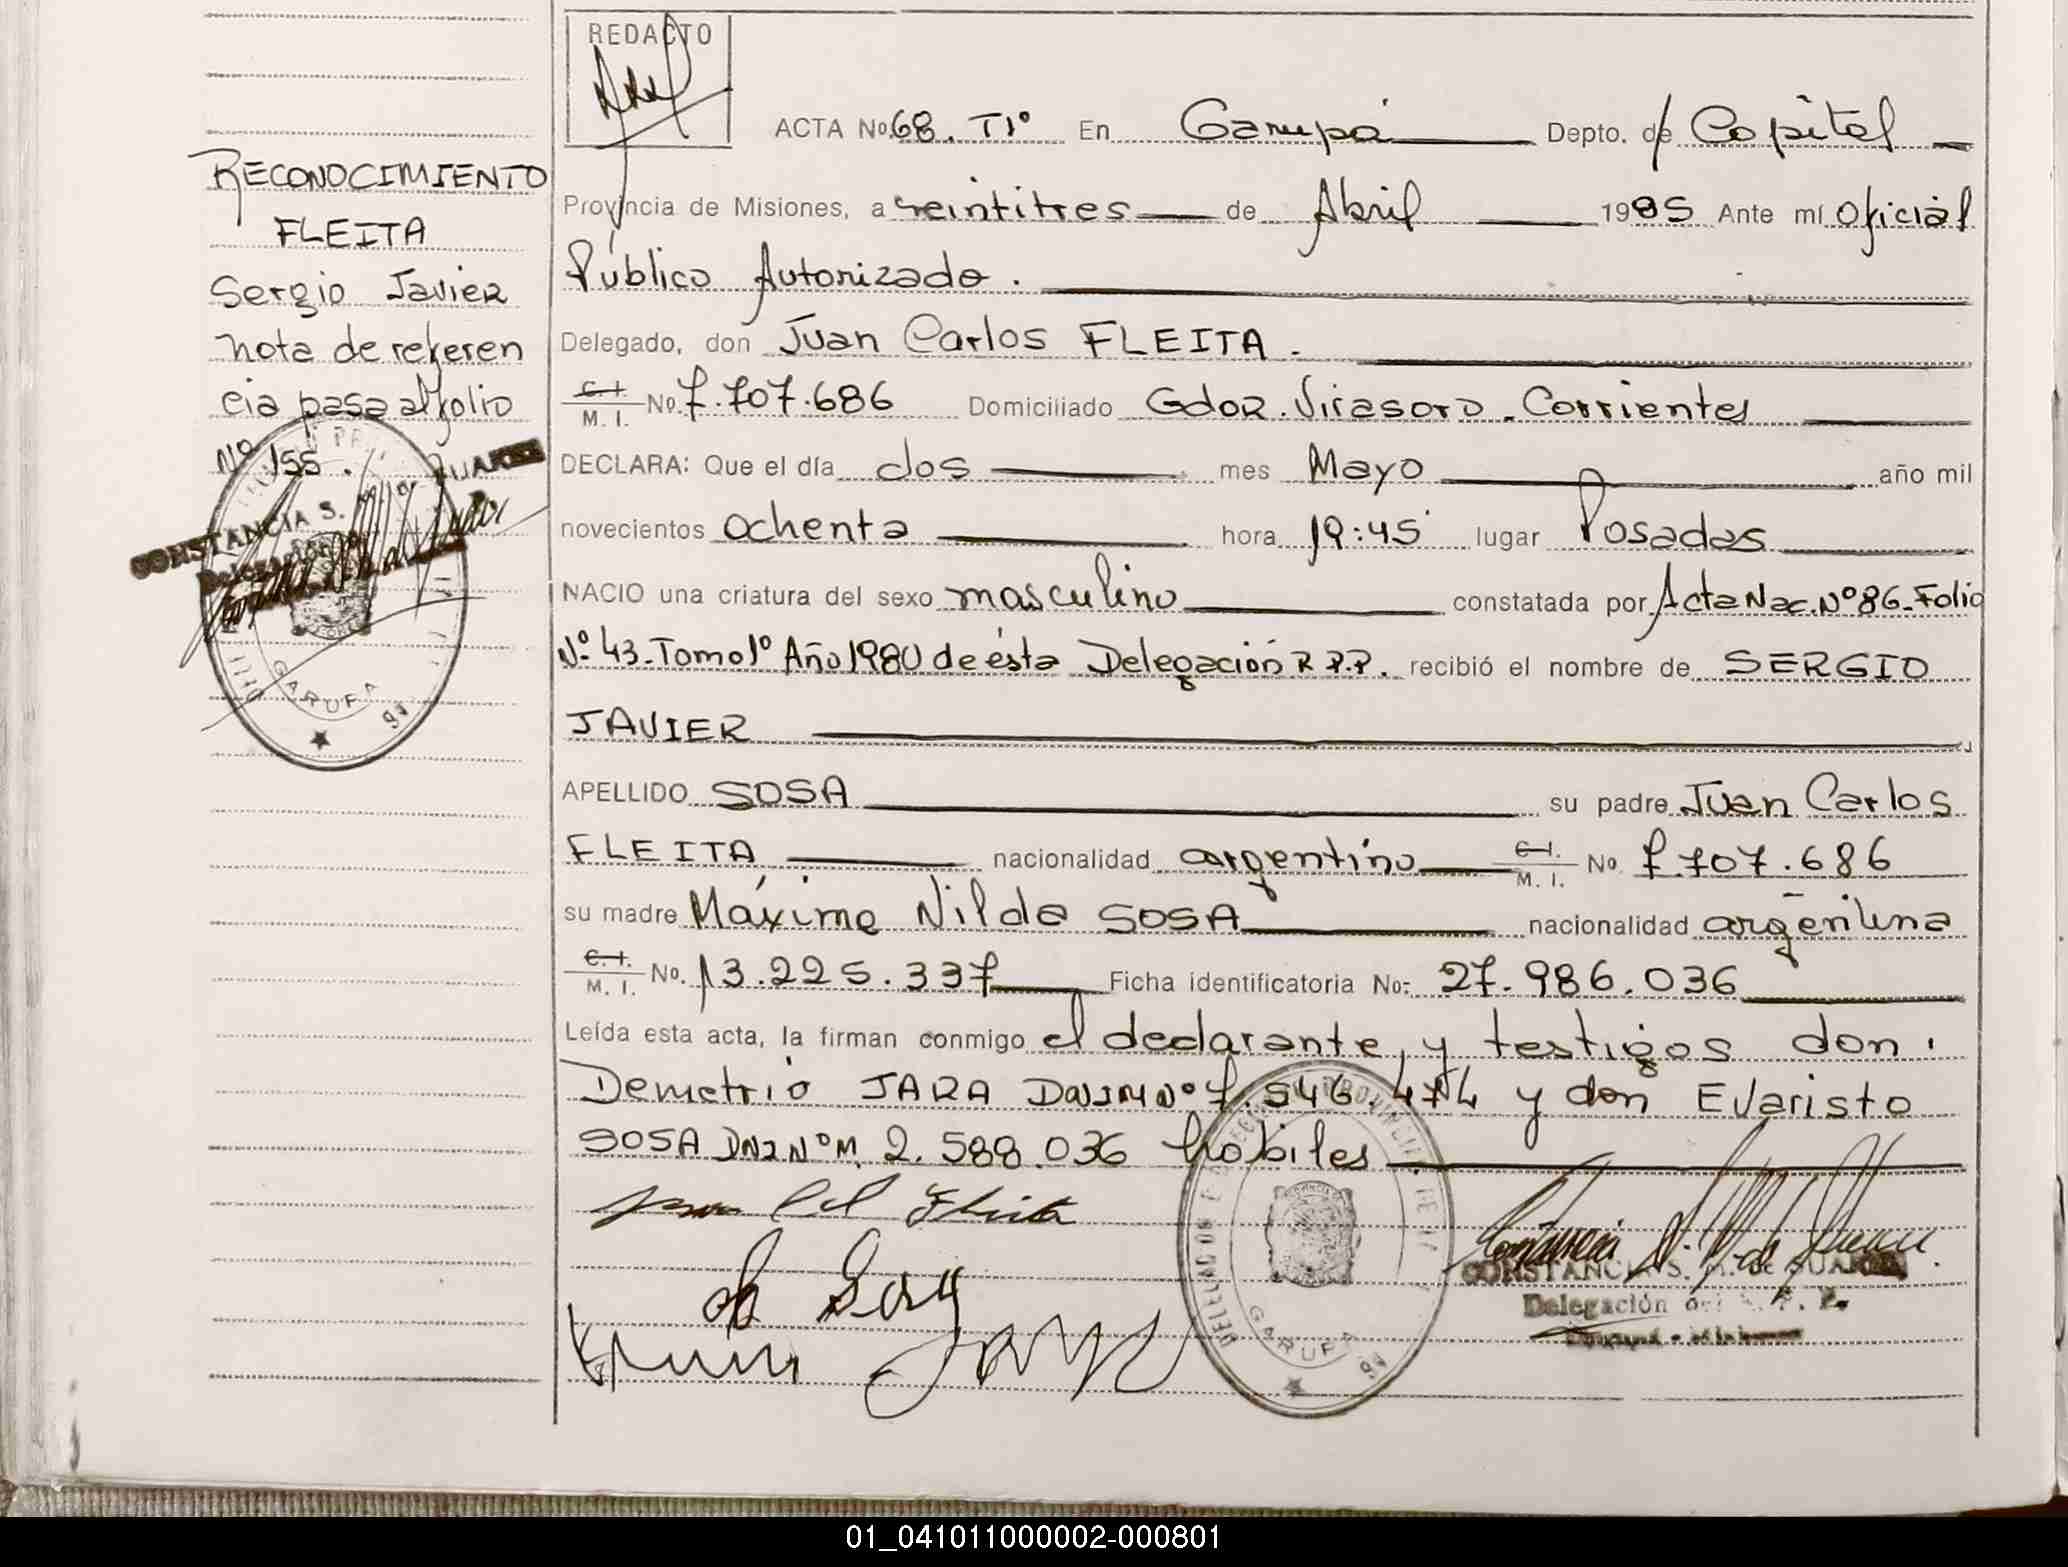 REDACTO
ACTA No. 68. T1º En Garupá Depto. de Capital
RECONOCIMIENTO
FLEITA
Sergio Javier
nota de referen
cia pasa al folio
Nº 155.
Provincia de Misiones, a veintitres de Abril 1985 Ante mí Oficial
Público Autorizado.
Delegado, don Juan Carlos FLEITA.
C. I. / M. I. No. 7.707.686 Domiciliado Gdor. Virasoro. Corrientes
DECLARA: Que el día dos mes Mayo año mil
novecientos ochenta hora 19:45 lugar Posadas
NACIO una criatura del sexo masculino constatada por Acta Nac. Nº 86. Folio
Nº 43. Tomo 1º Año 1980 de ésta Delegación R.P.P. recibió el nombre de SERGIO
JAVIER
APELLIDO SOSA su padre Juan Carlos
FLEITA nacionalidad argentino C. I. / M. I. No. 7.707.686
su madre Máxima Nilda SOSA nacionalidad argentina
C. I. / M. I. No. 13.225.337 Ficha identificatoria No: 27.986.036
Leída esta acta, la firman conmigo el declarante, y testigos don
Demetrio JARA DNI M Nº 7.546.474 y don Evaristo
SOSA DNI Nº M. 2.588.036 habiles
CONSTANCIA S. M. de JUAREZ
Delegación del R. P. P.
GARUPA
GARUPA
01_041011000002-000801